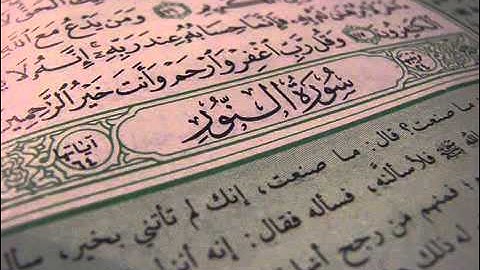 وَمَن يَدْعُ مَعَ
فَإِنَّمَا حِسَابُهُ عِندَ رَبِّهِ إِنَّهُ لَا
الْكَٰفِرُونَ وَقُل رَّبِّ اغْفِرْ وَارْحَمْ وَأَنتَ خَيْرُ الرَّٰحِمِينَ
سُورَةُ النُّورِ
آياتها ٦٤
ما صنعت؟ قال: ما صنعت، إنك لم تأتني بخير،
الله ﷺ فلأسألنه، فسأله فقال: إنه
فمنهم من رجع
له ذلك